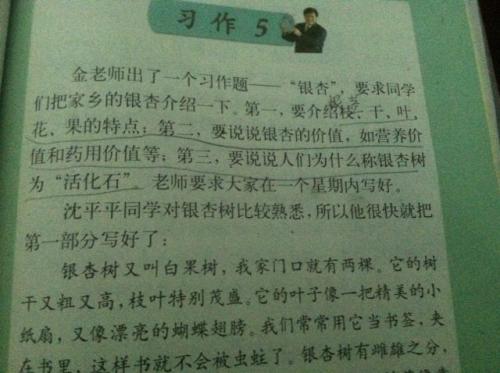 习作5
金老师出了一个习作题——“银杏”，要求同学
们把家乡的银杏介绍一下。第一，要介绍枝、干、叶、
花、果的特点；第二，要说说银杏的价值，如营养价
值和药用价值等；第三，要说说人们为什么称银杏树
为“活化石”。老师要求大家在一个星期内写好。
沈平平同学对银杏树比较熟悉，所以他很快就把
第一部分写好了：
银杏树又叫白果树，我家门口就有两棵。它的树
干又粗又高，枝叶特别茂盛。它的叶子像一把精美的小
纸扇，又像漂亮的蝴蝶翅膀。我们常常用它当书签，夹
在书里，这样书就不会被虫蛀了。银杏树有雌雄之分，